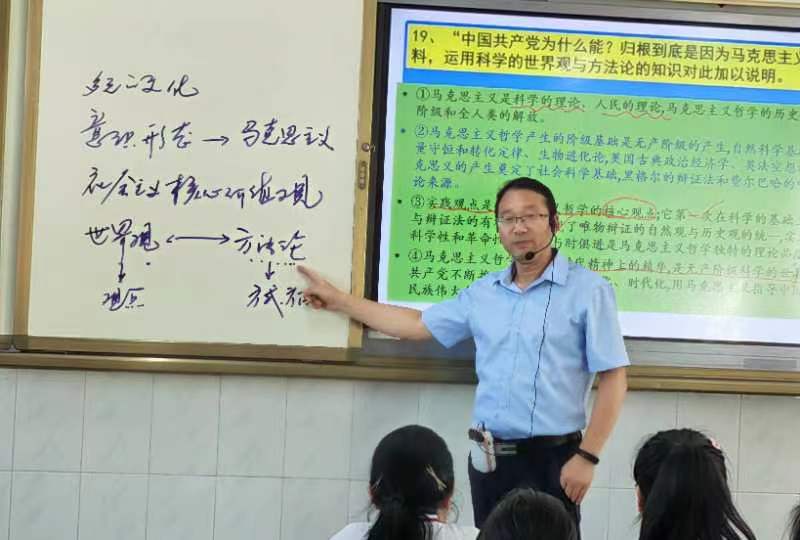 意识形态→马克思主义
社会主义核心价值观
世界观 ↔ 方法论
↓ ↓
观点 方式 方法
19、“中国共产党为什么能？归根到底是因为马克思主义
料，运用科学的世界观与方法论的知识对此加以说明。
①马克思主义是科学的理论、人民的理论,马克思主义哲学的历史
阶级和全人类的解放。
②马克思主义哲学产生的阶级基础是无产阶级的产生,自然科学基
量守恒和转化定律、生物进化论,英国古典政治经济学、英法空想
克思义的产生奠定了社会科学基础,黑格尔的辩证法和费尔巴哈的
论来源。
③实践观点是 哲学的核心观点;它第一次在科学的基础
与辩证法的有 了唯物辩证的自然观与历史观的统一,
科学性和革命性 时俱进是马克思主义哲学独特的理论
④马克思主义哲 代精神上的精华,是无产阶级科学的
共产党不断 、时代化,用马克思主义指导中
民族伟大